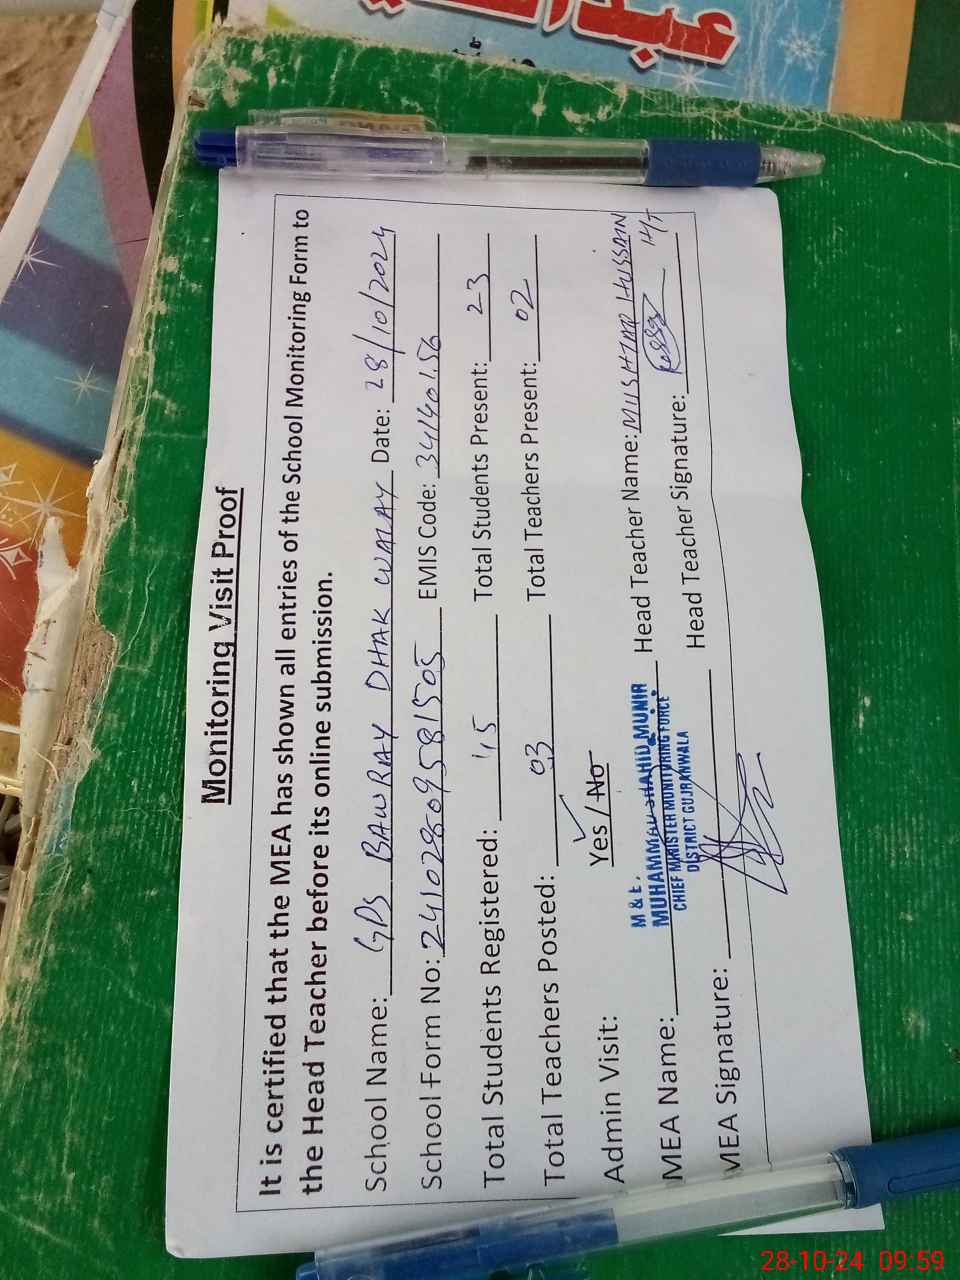 عبدا
Monitoring Visit Proof
It is certified that the MEA has shown all entries of the School Monitoring Form to
the Head Teacher before its online submission.
School Name: GPS BAWRAY DHAK WALAY Date: 28/10/2024
School Form No: 24102809581505 EMIS Code: 34140156
Total Students Registered: 45 Total Students Present: 23
Total Teachers Posted: 03 Total Teachers Present: 02
Admin Visit: Yes / No
M & E,
MEA Name: MUHAMMAD SHAHID MUNIR Head Teacher Name: MUSHTAQ HUSSAIN
CHIEF MINISTER MONITORING FORCE
DISTRICT GUJRANWALA
MEA Signature: Head Teacher Signature: H/T
28-10-24 09:59